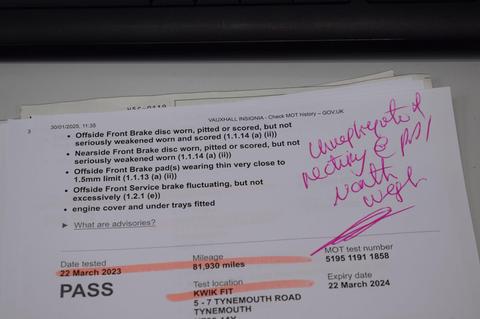 3
30/01/2025, 11:35
VAUXHALL INSIGNIA - Check MOT History – GOV.UK
• Offside Front Brake disc worn, pitted or scored, but not
seriously weakened worn and scored (1.1.14 (a) (ii))
• Nearside Front Brake disc worn, pitted or scored, but not
seriously weakened worn (1.1.14 (a) (ii))
• Offside Front Brake pad(s) wearing thin very close to
1.5mm limit (1.1.13 (a) (ii))
• Offside Front Service brake fluctuating, but not
excessively (1.2.1 (e))
• engine cover and under trays fitted
▶ What are advisories?
Date tested
22 March 2023
Mileage
81,930 miles
MOT test number
5195 1191 1858
PASS
Test location
KWIK FIT
5 - 7 TYNEMOUTH ROAD
TYNEMOUTH
Expiry date
22 March 2024